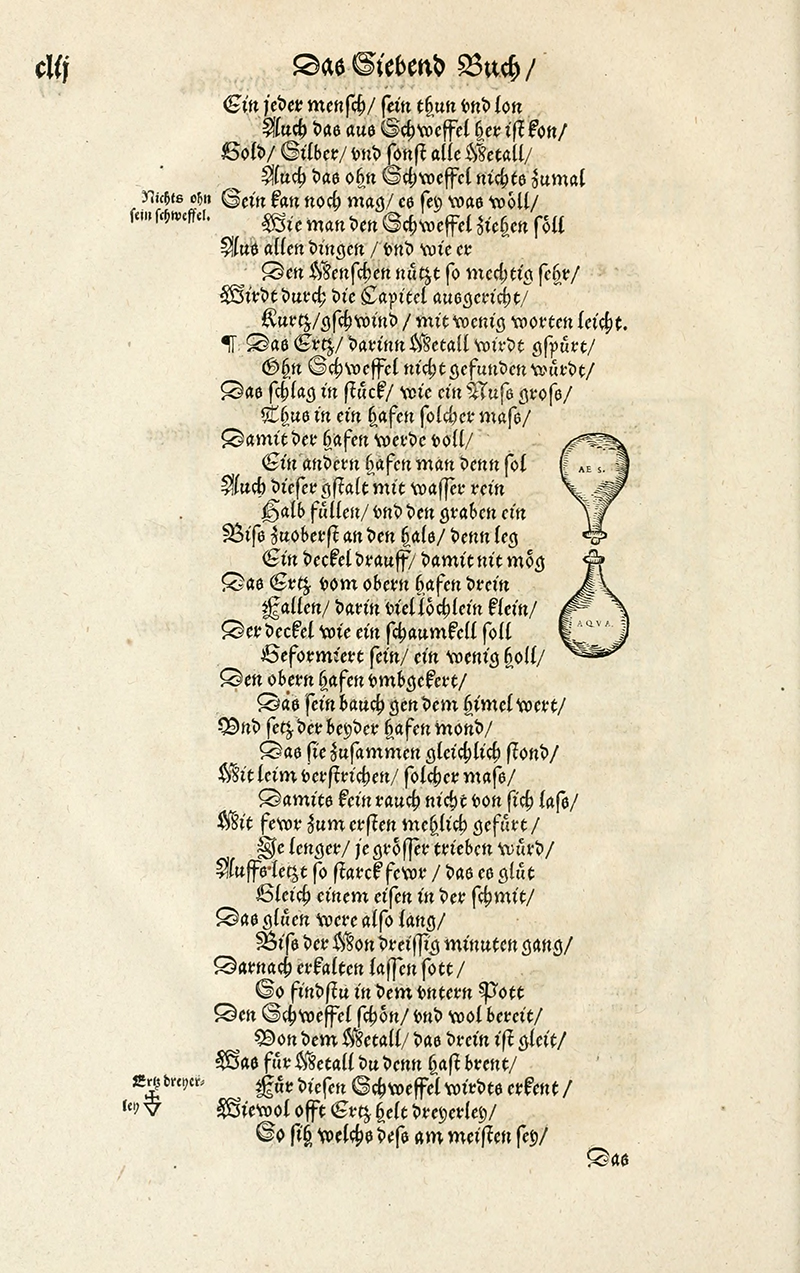 clij
Das Siebend Buch/
Ein jeder mensch/ sein thun vnd lon
Auch das aus Schweffel her ist kon/
Gold/ Silber/ vnd sonst alle Metall/
Auch das ohn Schweffel nichts zumal
Nichts ohn
sein schweffel.
Sein kan noch mag/ es sey was wöll/
Wie man den Schweffel ziehen söll
Aus allen dingen / vnd wie er
Den Menschen nützt so mechtig sehr/
Wirdt durch die Capitel ausgericht/
Kurtz/ gschwind / mit wenig worten leicht.
¶ Das Ertz/ darinn Metall wirdt gspürt/
Ohn Schweffel nicht gefunden würdt/
Das schlag in stück/ wie ein Nuss gross/
Thus in ein hafen solcher mass/
Damit der hafen werde voll/
Ein andern hafen man denn sol
Auch dieser gstalt mit wasser rein
Halb füllen/ vnd den graben ein
Biss zuoberst an den hals/ denn leg
Ein deckel drauff/ damit nit mög
Das Ertz vom obern hafen drein
Fallen/ darin viel löchlein klein/
Der deckel wie ein schaumkell soll
Geformiert sein/ ein wenig holl/
AES.
AQVA.
Den obern hafen vmbgekert/
Das sein bauch gen dem himel wert/
Vnd setz der beyder hafen mond/
Das sie zusammen gleichlich stond/
Mit leim verstrichen/ solcher mass/
Damits kein rauch nicht von sich lass/
Mit fewr zum ersten mehlich gefürt/
Je lenger/ je grösser trieben würd/
Auffs letzt so starck fewr / das es glüt
Gleich einem eisen in der schmit/
Das glüen were also lang/
Biss der Mon dreissig minuten gang/
Darnach erkalten lassen sott/
So findstu in dem vntern Pott
Den Schweffel schön/ vnd wol bereit/
Von dem Metall/ das drein ist gleit/
Was für Metall du denn hast brent/
Ertz dreyer-
ley
Für diesen Schweffel wirdts erkent /
Wiewol offt Ertz helt dreyerley/
So sih welchs dess am meisten sey/
Das